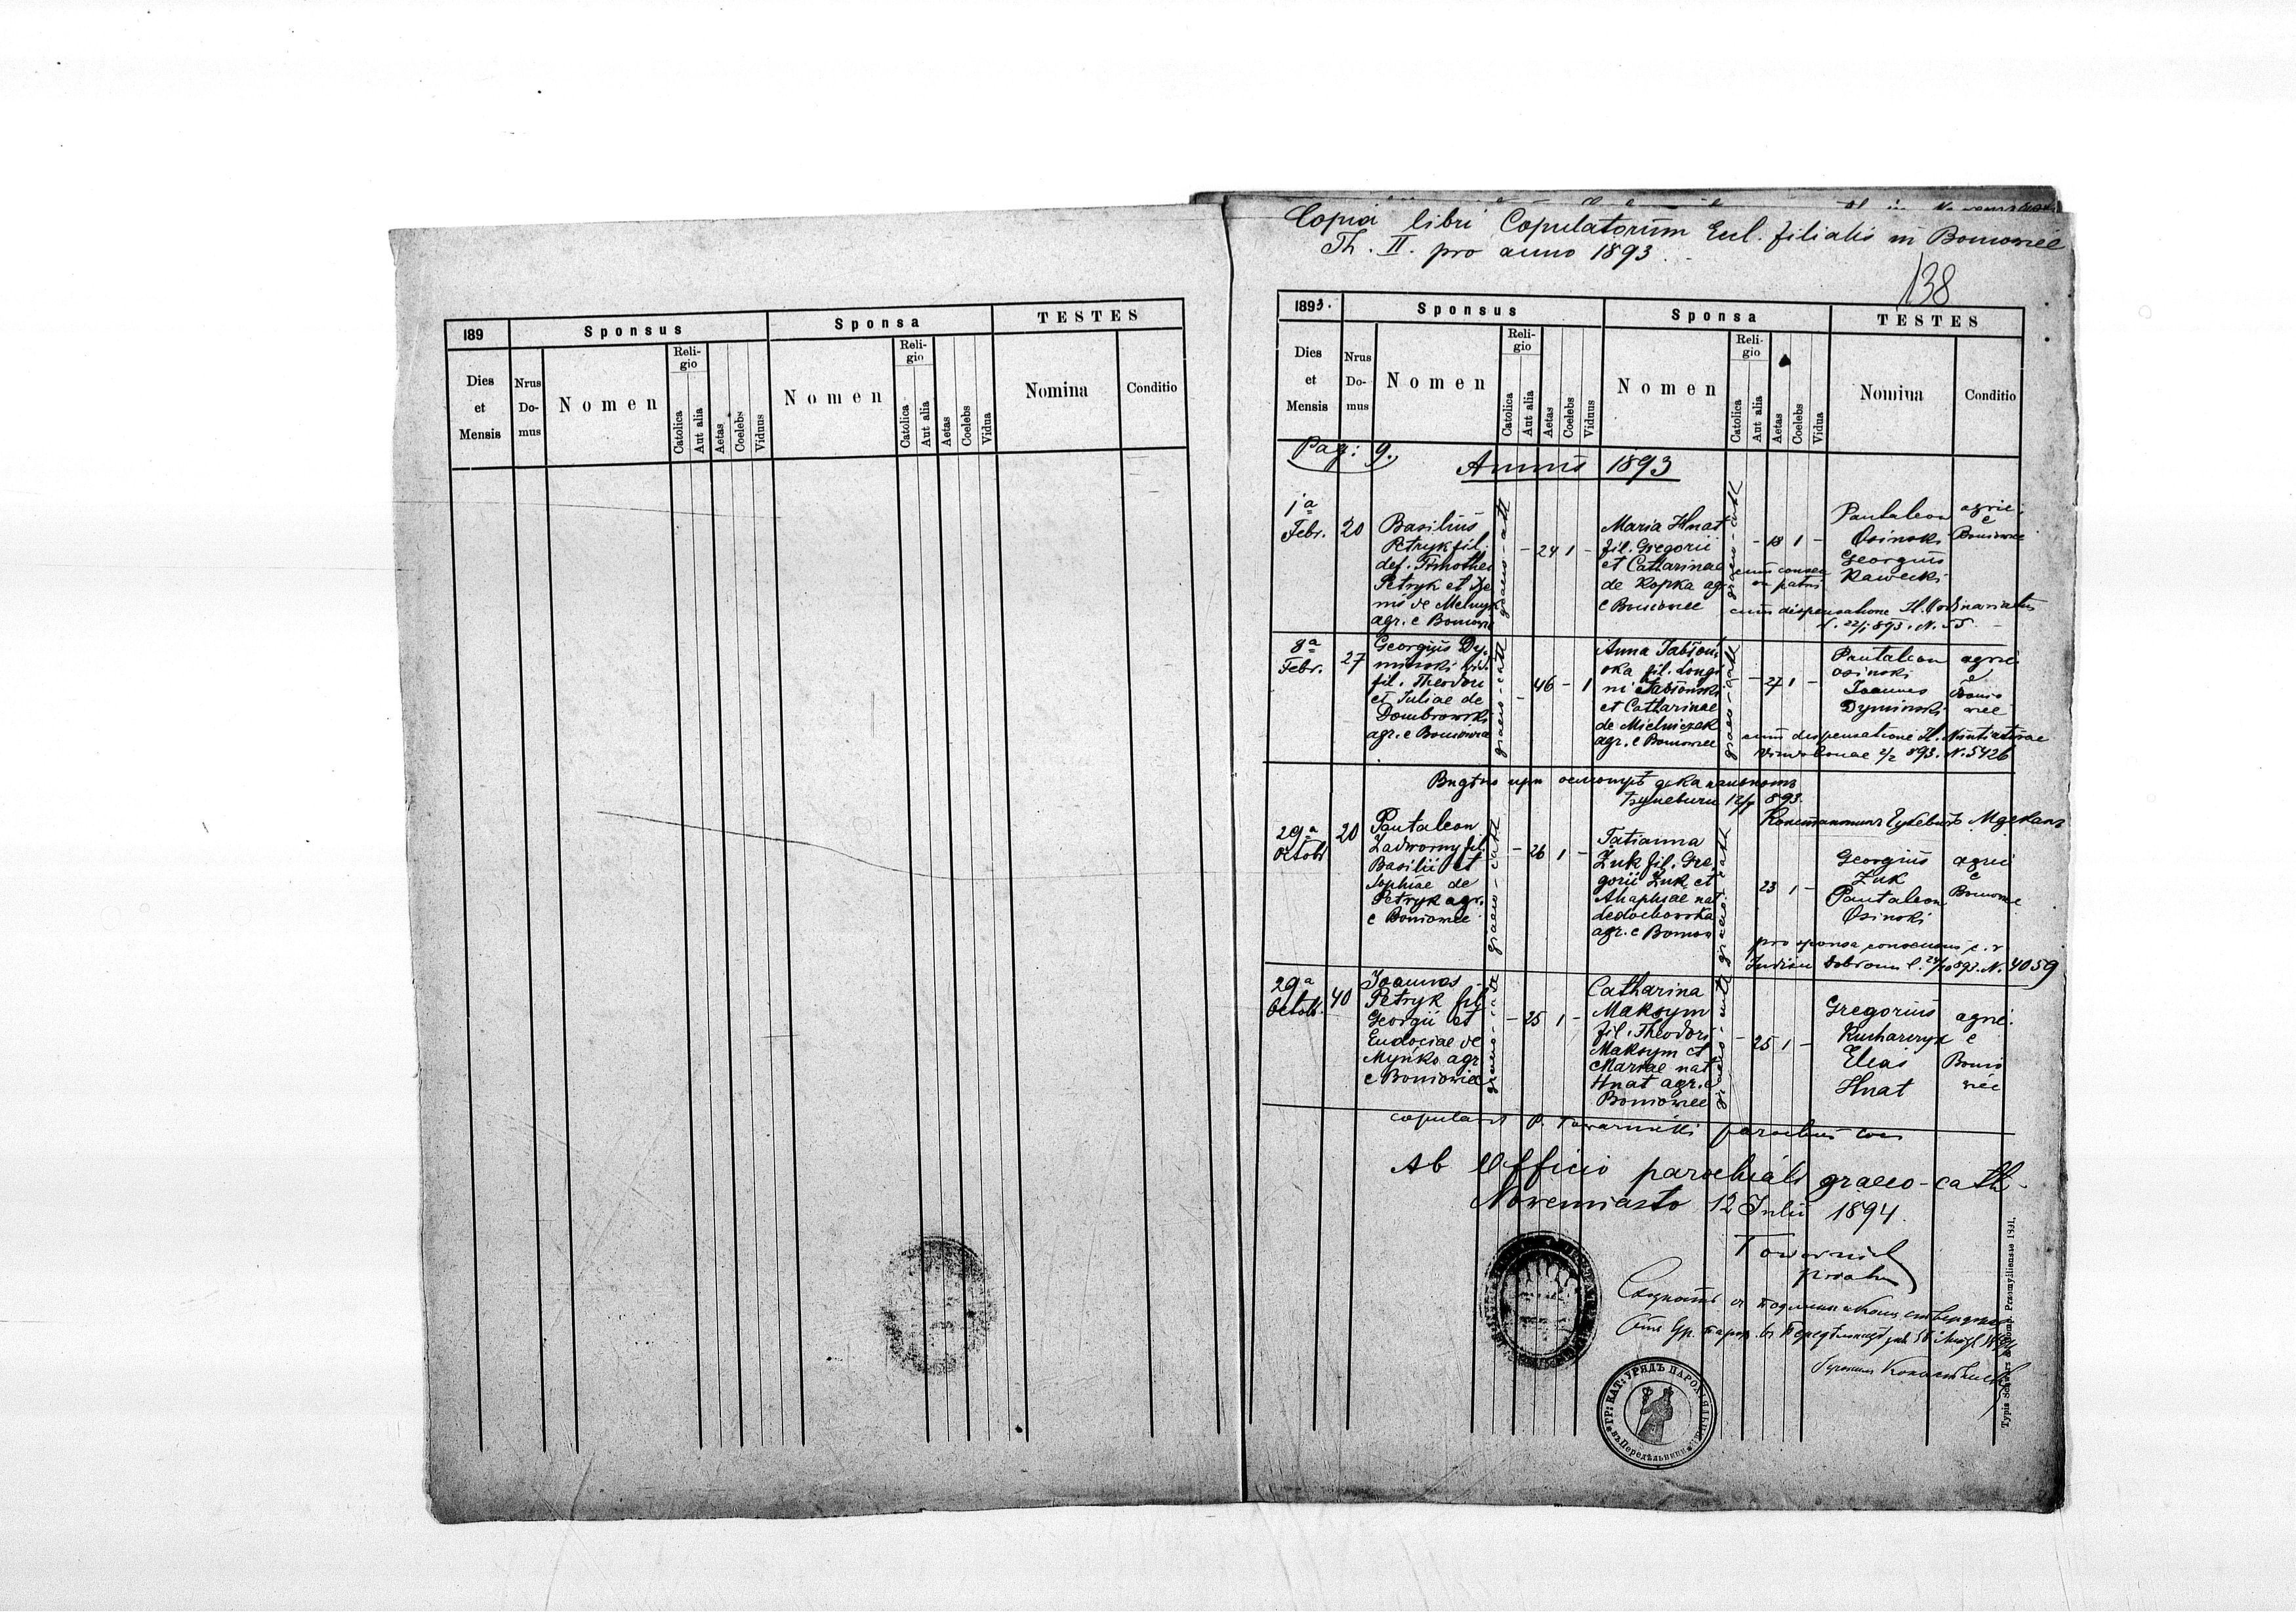 189
Sponsus
Sponsa
TESTES
Dies et Mensis
Nrus Do- mus
Nomen
Reli- gio
Catolica
Aut alia
Aetas
Coelebs
Viduus
Nomen
Reli- gio
Catolica
Aut alia
Aetas
Coelebs
Vidua
Nomina
Conditio
Copia libri Copulatorum Eccl. filialis in Boniowice
Th. II. pro anno 1893
138
1893.
Sponsus
Sponsa
TESTES
Dies et Mensis
Nrus Do- mus
Nomen
Reli- gio
Catolica
Aut alia
Aetas
Coelebs
Viduus
Nomen
Reli- gio
Catolica
Aut alia
Aetas
Coelebs
Vidua
Nomina
Conditio
Pag: 9.
Annus 1893
1a
Febr.
20
Basilius
Petryk fil.
def. Timothei
Petryk et
de Melnyk
agr. e Boniowice
graeco-cath
- 24 1 -
Maria Hnat
fil. Gregorii
et Catharinae
de Kopka agr
e Boniowice
graeco-cath
- 18 1 -
Pantaleon
Osinski
Georgius
Rawecki
agric.
e
Boniowice
cum dispensatione Il. Ordinariatus
N. 55
8a
Febr.
27
Georgius Dy-
minski
fil. Theodori
et Juliae de
Dombrowski
agr. e Boniowice
graeco-cath
- 46 - 1
Anna Jabłon-
ska fil. Longi
ni Jabłonski
et Catharinae
de Mielniczek
agr. e Boniowice
graeco-cath
- 27 1 -
Pantaleon
Osinski
Joannes
Dyminski
agric
e
Bonio
wice
cum dispensatione Il. Nuntiaturae
Vindobonae 2/2 893. N. 5426
29a
Octobr
20
Pantaleon
Zadworny fil
Basilii et
Sophiae de
Petryk agr.
e Boniowice
graeco-cath
- 26 1 -
Tatianna
Żuk fil. Gre
gorii Żuk et
Ahaphiae nat
de
agr. e Boniow
graeco-cath
23 1 -
Georgius
Żuk
Pantaleon
Osinski
agric
e
Boniowice
pro sponsa consensus c. r
Judicii Dobromil N. 4059
29a
Octob.
40
Joannes
Petryk fil
Georgii et
Eudociae de
Mynko agr
e Boniowice
graeco-cath
- 25 1 -
Catharina
Maksym
fil. Theodori
Maksym et
Mariae nat
Hnat agr. e
Boniowice
graeco-cath
- 25 1 -
Gregorius
Kucharczyk
Elias
Hnat
agric.
e
Bonio
wice
P. Towarnicki parochus loci
Ab Officio parochiali graeco-cath.
Novemiasto 12 Julii 1894
ГР. КАТ. УРЯДЪ ПАРОХІЯЛЬНЫЙ
въ Передѣльници
Premyśliensae 1891.